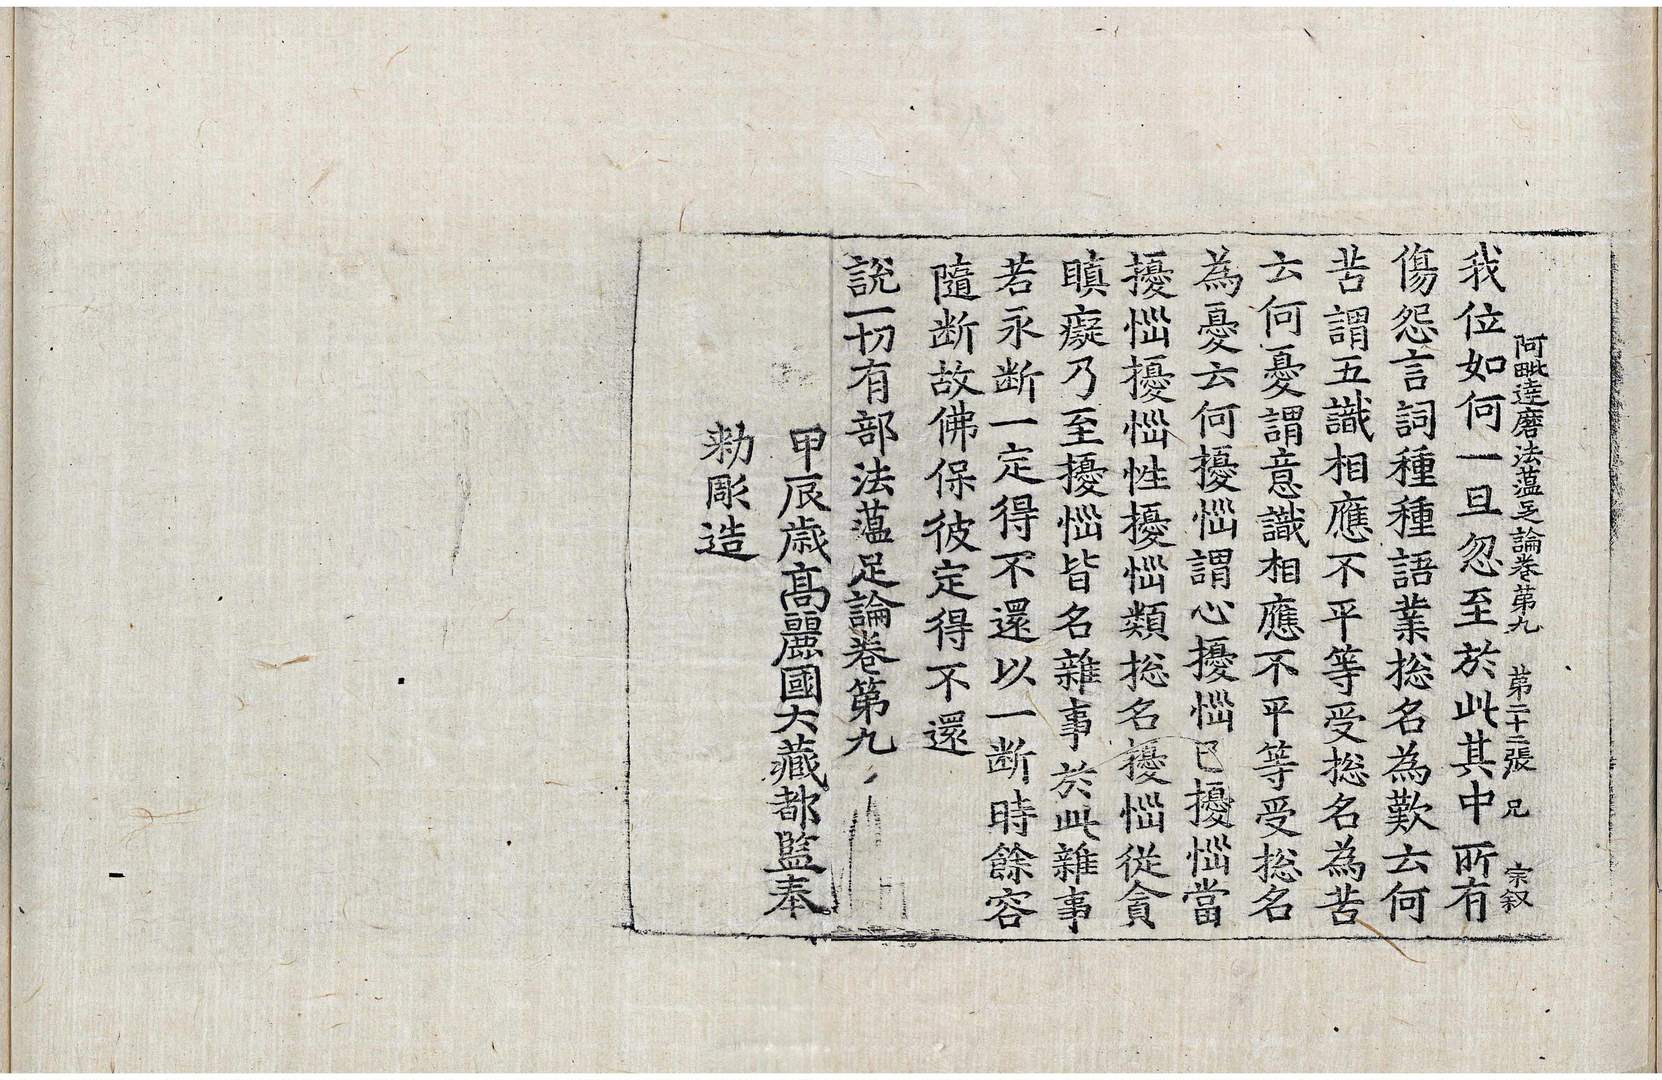 阿毗達磨法蕴足論卷第九 第二十二張 兄 宗叙
我位如何一旦忽至於此其中所有
傷怨言詞種種語業捴名為歎云何
苦謂五識相應不平等受捴名為苦
云何憂謂意識相應不平等受捴名
為憂云何擾惱謂心擾惱已擾惱當
擾惱擾惱性擾惱類捴名擾惱從貪
瞋癡乃至擾惱皆名雜事於此雜事
若永断一定得不還以一断時餘容
隨断故佛保彼定得不還
說一切有部法蕴足論卷第九
甲辰歲髙麗國大藏都監奉
勑彫造